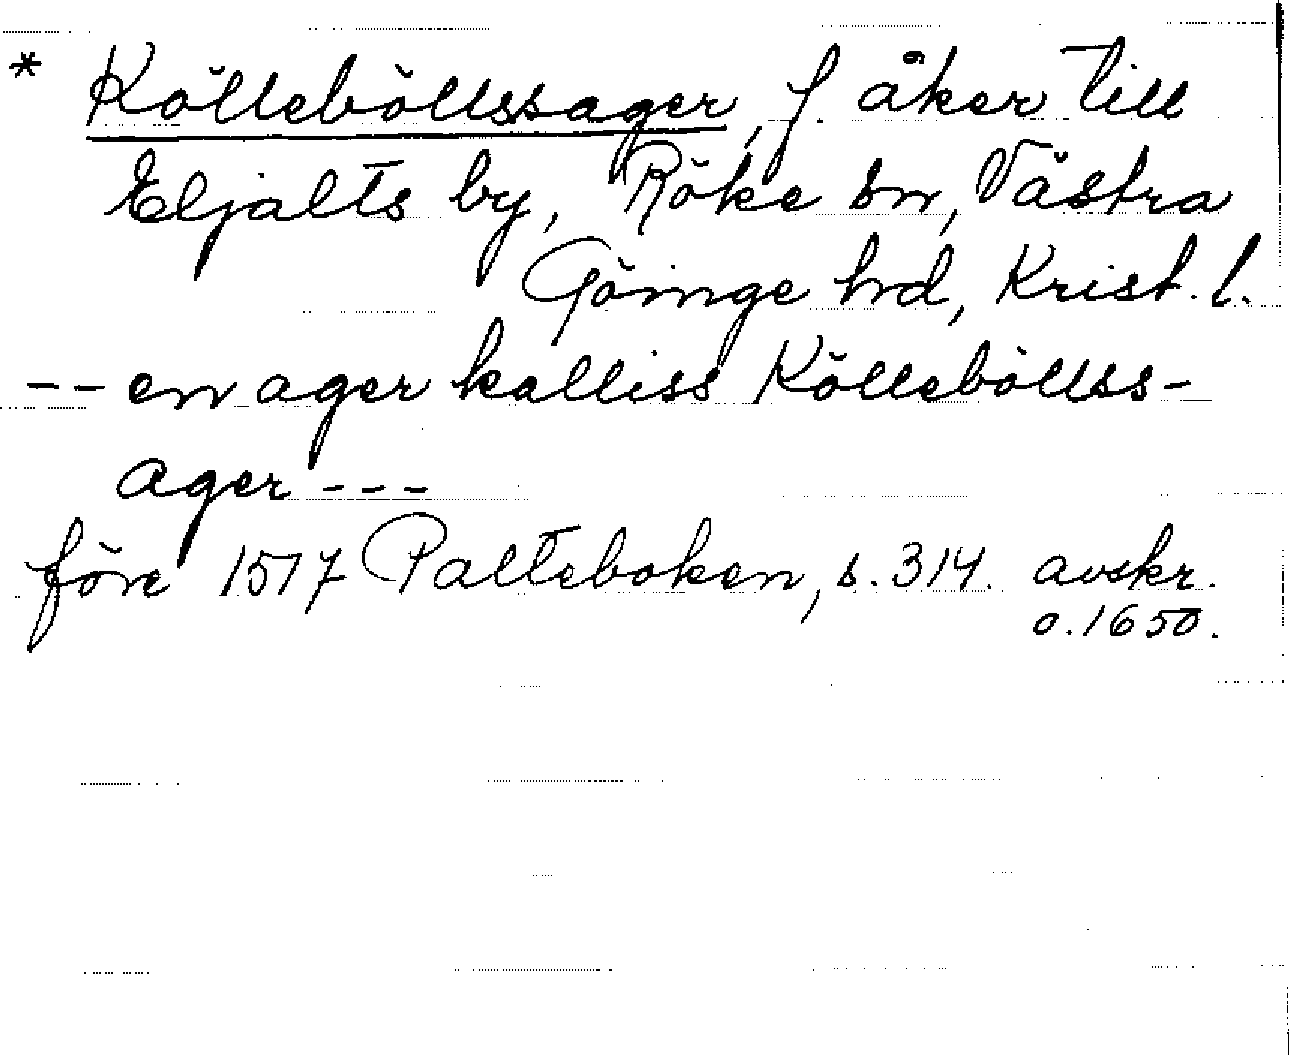 * Kölleböllssager, f. åker till
Eljalts by, Röke sn, Västra
Göinge hd, Krist. l.
-- en ager kalliss Kölleböllss-
ager ---
före 1517 Palteboken, s. 314. avskr.
o. 1650.